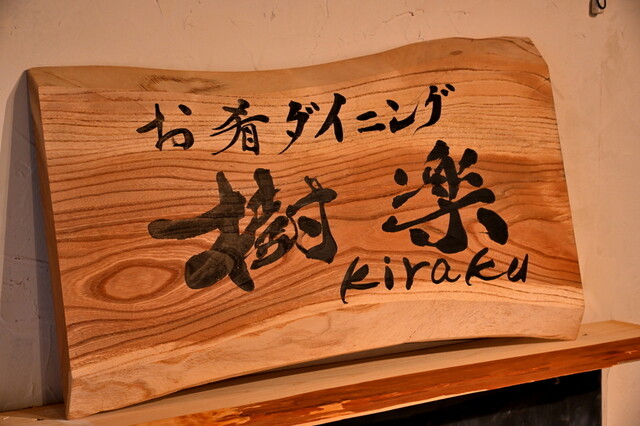 お肴ダイニング
樹楽
kiraku